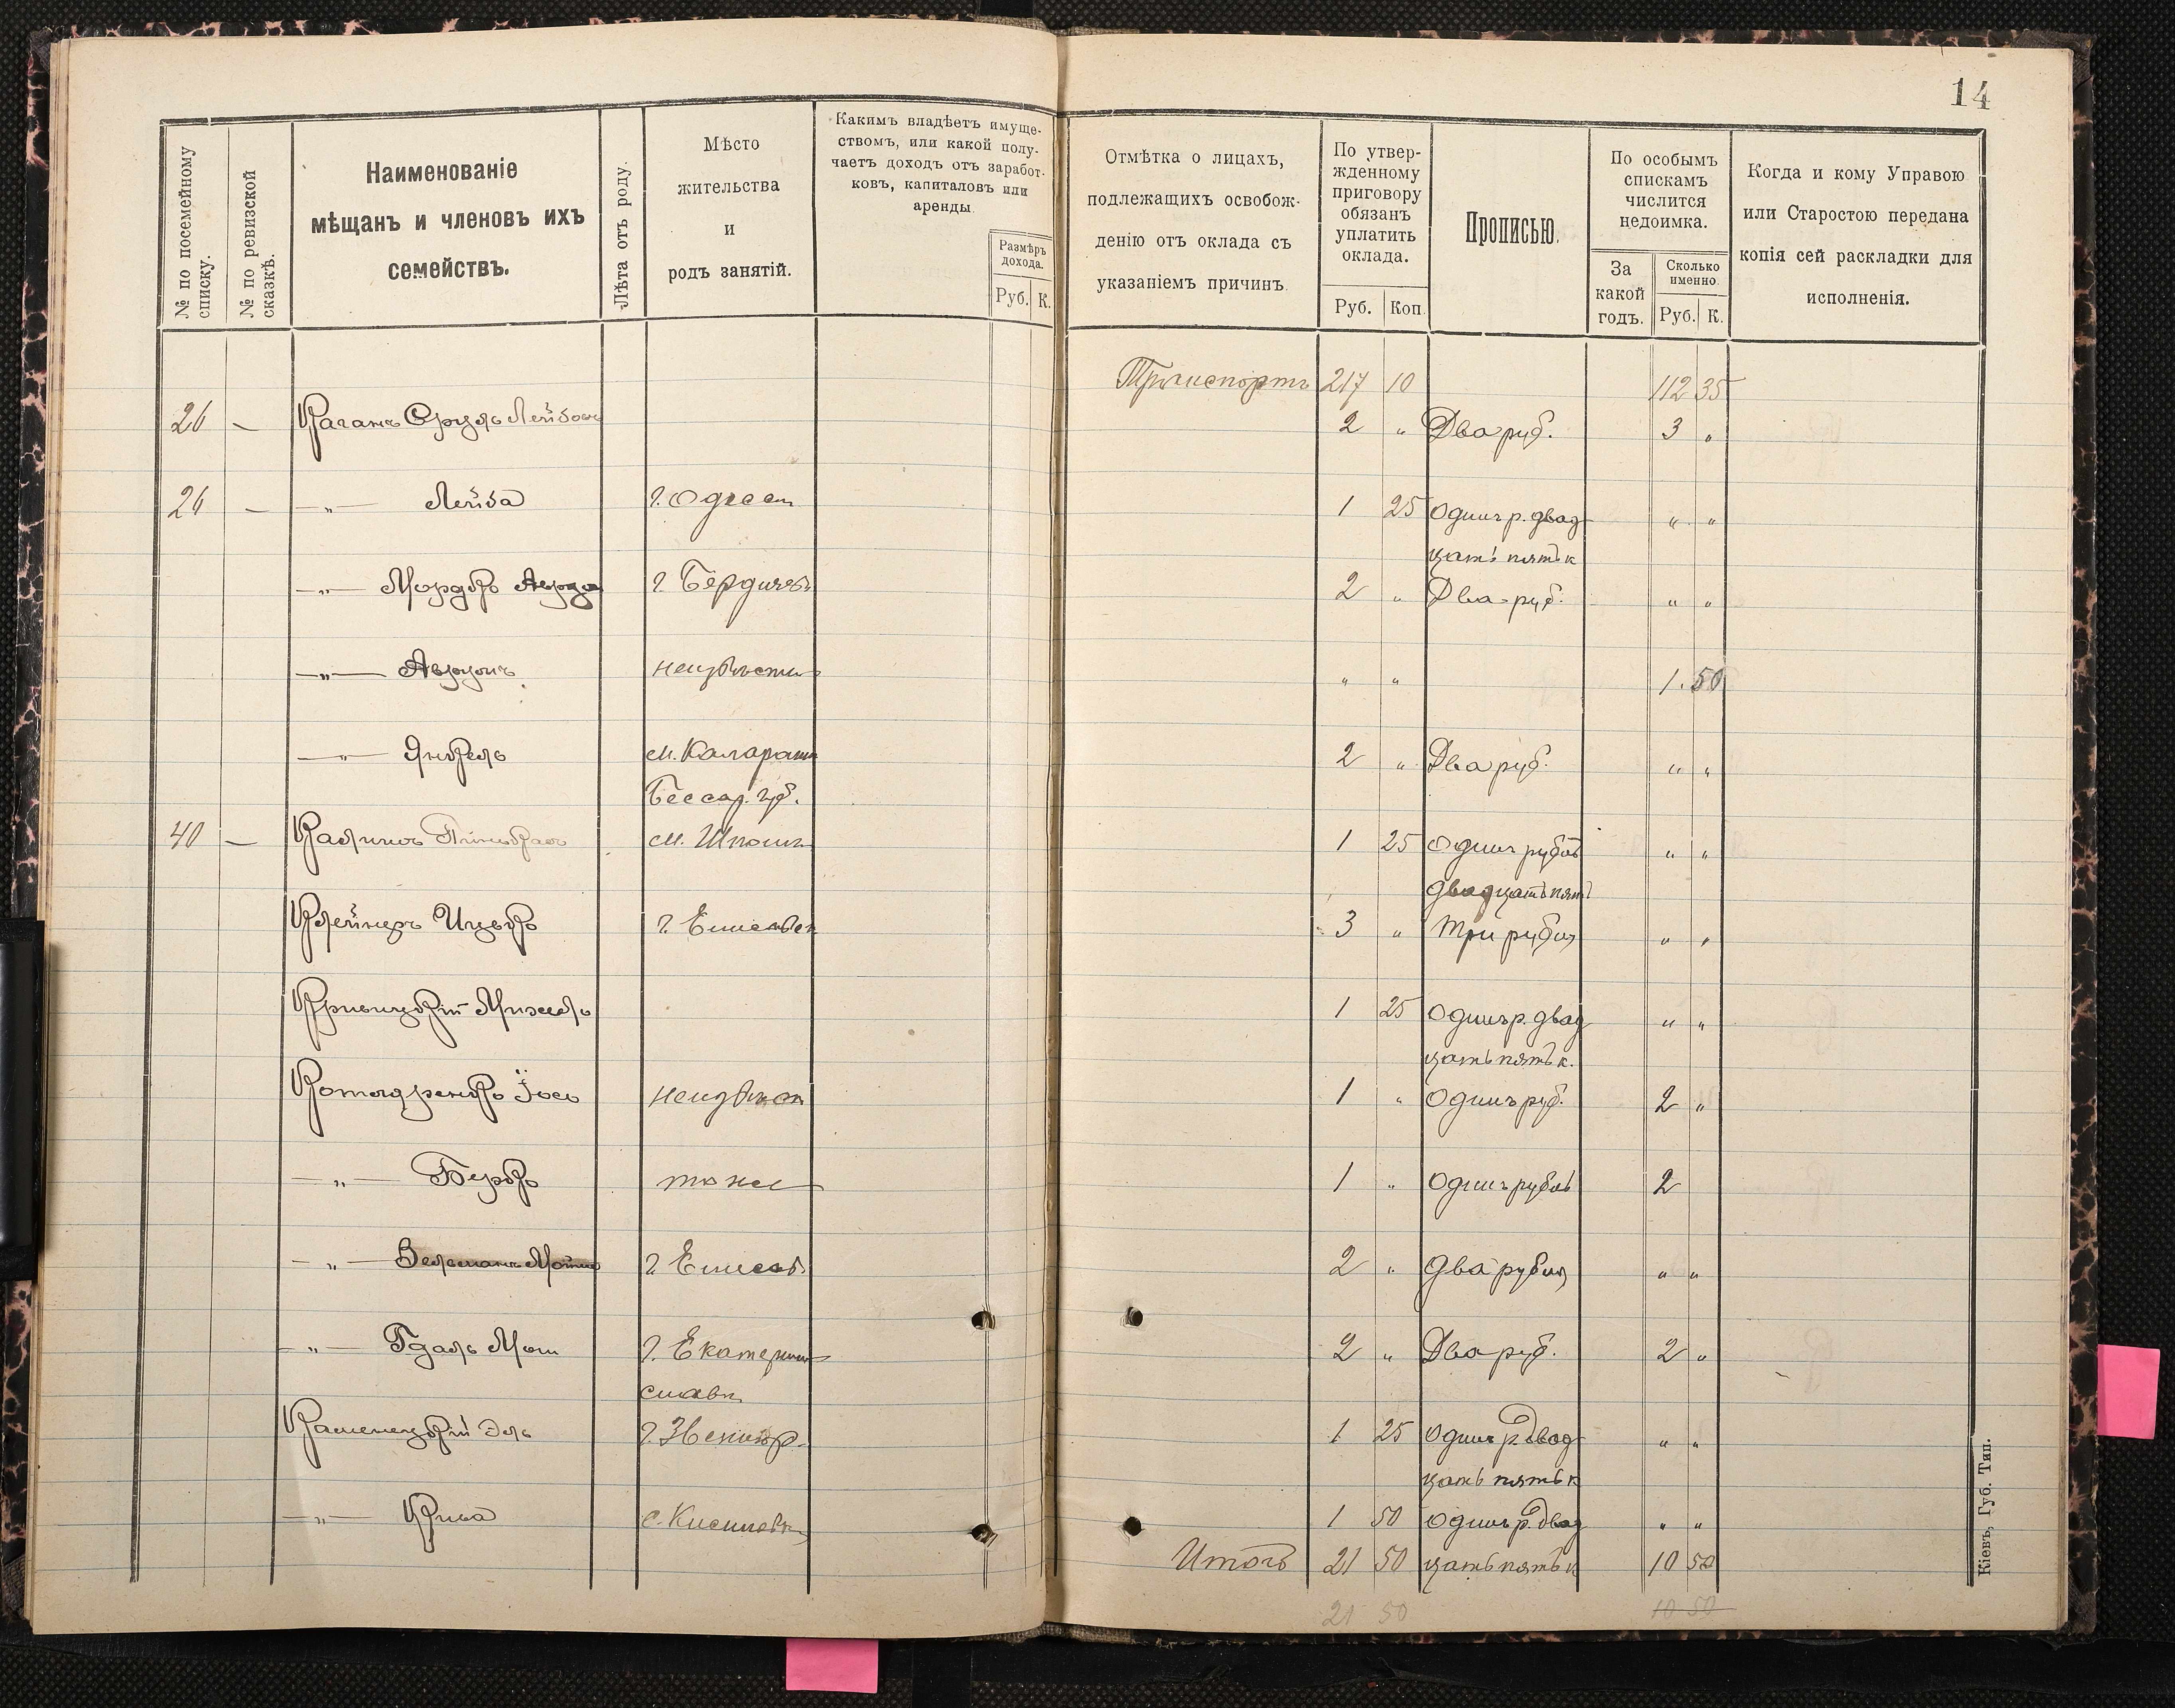 14
№ по посемейному
списку.
№ по ревизской
сказкѣ.
Наименованіе
мѣщанъ и членовъ ихъ
семействъ.
Лѣта отъ роду.
Мѣсто
жительства
и
родъ занятій.
Какимъ владѣетъ имуще-
ствомъ, или какой полу-
чаетъ доходъ отъ заработ-
ковъ, капиталовъ или
аренды.
Размѣръ
дохода.
Руб. К.
Отмѣтка о лицахъ,
подлежащихъ освобож-
денію отъ оклада съ
указаніемъ причинъ.
По утвер-
жденному
приговору
обязанъ
уплатить
оклада.
Руб. Коп.
Прописью.
По особымъ
спискамъ
числится
недоимка.
За
какой
годъ.
Сколько
именно.
Руб. К.
Когда и кому Управою
или Старостою передана
копія сей раскладки для
исполненія.
Транспортъ 217 10 112 35
26 — Каганъ Сруль Лейбовъ 2 " Два руб. 3 "
26 — —"— Лейба г. Одесса 1 25 Одинъ р. двад
цать пять к " "
—"— Мордко г. Бердичевъ 2 " Два руб. " "
—"— неизвѣстн " " 1. 50
—"— Янкель м. Калараш 2 " Два руб. " "
Бессар. губ.
40 — м. Шпола 1 25 Одинъ рубль " "
двадцать пять
Клейнеръ Ицько г. Елисав 3 " Три рубля " "
Кривицкій 1 25 Одинъ р. двад " "
цать пять к.
Іось неизвѣст 1 " Одинъ руб. 2 "
—"— Берко тоже 1 " Одинъ рубль 2
—"— Зельманъ г. Елисав 2 " Два рубля " "
—"— Гдаль г. Екатерин 2 " Два руб. 2 "
славъ
Каменецкій Эль 1 25 Одинъ р. двад " "
цать пять к
—"— 1 50 Одинъ р. двад " "
Итого 21 50 цать пять к 10 50
21 50 10 50
Кіевъ, Губ. Тип.